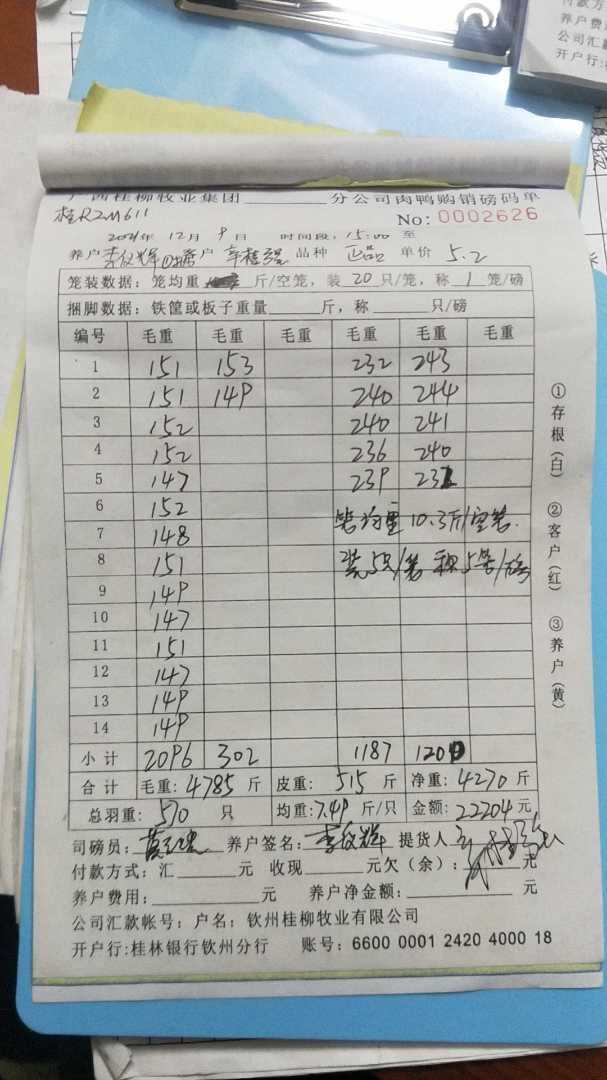 付款方
养户费用
公司汇款
开户行:
广西桂柳牧业集团________分公司肉鸭购销磅码单
桂R2M611
No: 0002626
2021年 12月 9日 时间段: 15:00 至
养户 李仪辉 客户 品种 正品 单价 5.2
笼装数据: 笼均重 斤/空笼, 装 20 只/笼, 称 1 笼/磅
捆脚数据: 铁筐或板子重量____斤, 称____只/磅
编号 毛重 毛重 毛重 毛重 毛重 毛重
1 151 153 232 243
2 151 149 240 244
3 152 240 241
4 152 236 240
5 147 239 232
6 152 笼均重10.3斤/空笼.
7 148
8 151 装5只/笼 称5笼/磅
9 149
10 147
11 151
12 147
13 149
14 149
小计 2096 302 1187 1200
合计 毛重: 4785 斤 皮重: 515 斤 净重: 4270 斤
总羽重: 570 只 均重: 7.49 斤/只 金额: 22204 元
司磅员: 养户签名: 李仪辉 提货人
付款方式: 汇____元 收现____元欠(余): ____元
养户费用: ____元 养户净金额: ____元
公司汇款帐号: 户名: 钦州桂柳牧业有限公司
开户行:桂林银行钦州分行 账号: 6600 0001 2420 4000 18
①存根(白) ②客户(红) ③养户(黄)